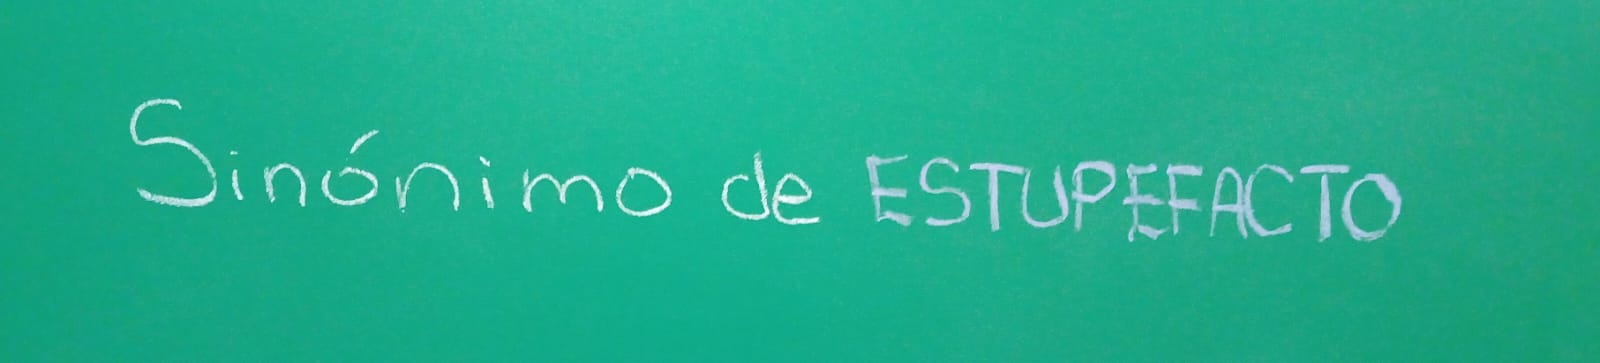 Sinónimo de ESTUPEFACTO